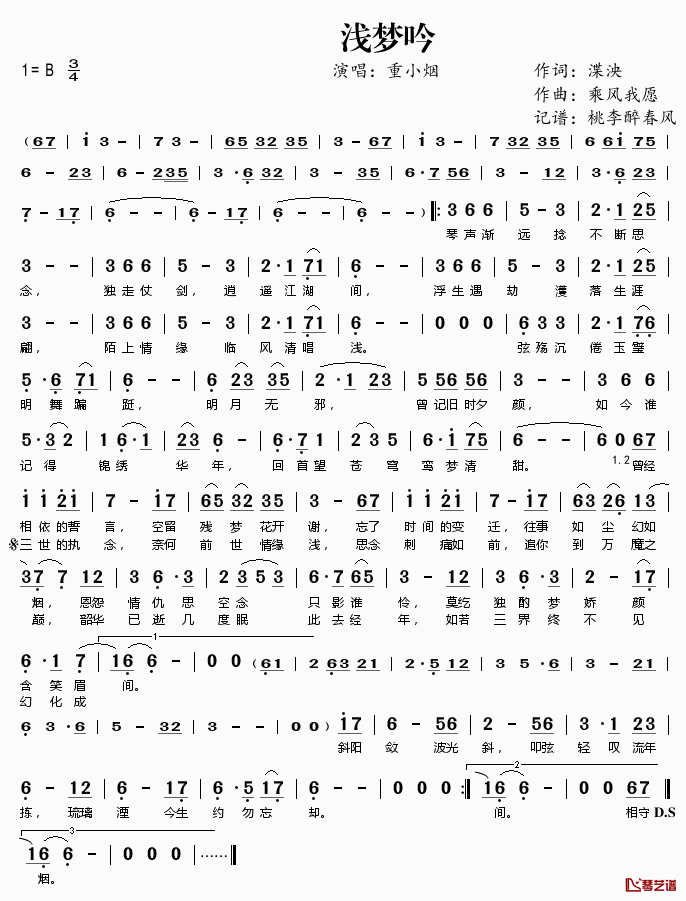 浅梦吟
1= B 3/4 演唱：重小烟 作词：渫泱
作曲：乘风我愿
记谱：桃李醉春风
（67 | i 3 - | 7 3 - | 65 32 35 | 3 - 67 | i 3 - | 7 32 35 | 6 6i 75 |
6 - 23 | 6 - 235 | 3 ·6 32 | 3 - 35 | 6·7 56 | 3 - 12 | 3·6 23 |
7 - 17 | 6 - - | 6 - 17 | 6 - - | 6 - - ）‖: 3 6 6 | 5 - 3 | 2·1 25 |
琴声渐 远 捻 不断思
3 - - | 3 6 6 | 5 - 3 | 2·1 71 | 6 - - | 3 6 6 | 5 - 3 | 2·1 25 |
念， 独走仗 剑，逍 遥江湖 间， 浮生遇 劫 濩 落生涯
3 - - | 3 6 6 | 5 - 3 | 2·1 71 | 6 - - | 0 0 0 | 6 3 3 | 2·1 76 |
翩， 陌上情 缘 临 风清唱 浅。 弦殇沉 倦玉璧
5·6 71 | 6 - - | 6 23 35 | 2·1 23 | 5 56 56 | 3 - - | 3 6 6 |
明舞蹁 跹， 明月无 邪， 曾记旧时夕 颜， 如今谁
5·3 2 | 1 6·1 | 23 6 - | 6·7 1 | 2 3 5 | 6·1 75 | 6 - - | 6 0 67 |
记得 锦绣 华 年， 回首望 苍穹 鸾梦清 甜。 1.2 曾经
i i 2i | 7 - i7 | 65 32 35 | 3 - 67 | i i 2i | 7 - i7 | 63 26 13 |
相依的誓 言，空留 残 梦 花开 谢，忘了 时间的变 迁，往事 如 尘 幻如
※三世的执 念，奈何 前 世 情缘 浅，思念 刺 痛如 前，追你 到 万 魔之
37 7 12 | 3 6·3 | 2 35 3 | 6·7 65 | 3 - 12 | 3 6·3 | 2 - 17 |
烟， 恩怨 情仇思 空念 只影谁 怜，莫纥 独酌梦 娇 颜
巅， 韶华 已逝几 度眠 此去经 年，如若 三界终 不 见
6·1 7 | 1 16 6 - | 0 0（61 | 2 63 21 | 2·5 12 | 3 5·6 | 3 - 21 |
含笑眉 间。
幻化成
6 3·6 | 5 - 32 | 3 - - | 0 0）i7 | 6 - 56 | 2 - 56 | 3·1 23 |
斜阳 敛 波光 斜，叩弦 轻 叹 流年
6 - 12 | 6 - 17 | 6·5 17 | 6 - - | 0 0 0 :‖ 2 16 6 - | 0 0 67 ‖
拣，琉璃 湮 今生 约 勿忘 却。 间。 相守 D.S
3 16 6 - | 0 0 0 | ……‖
烟。
琴艺谱